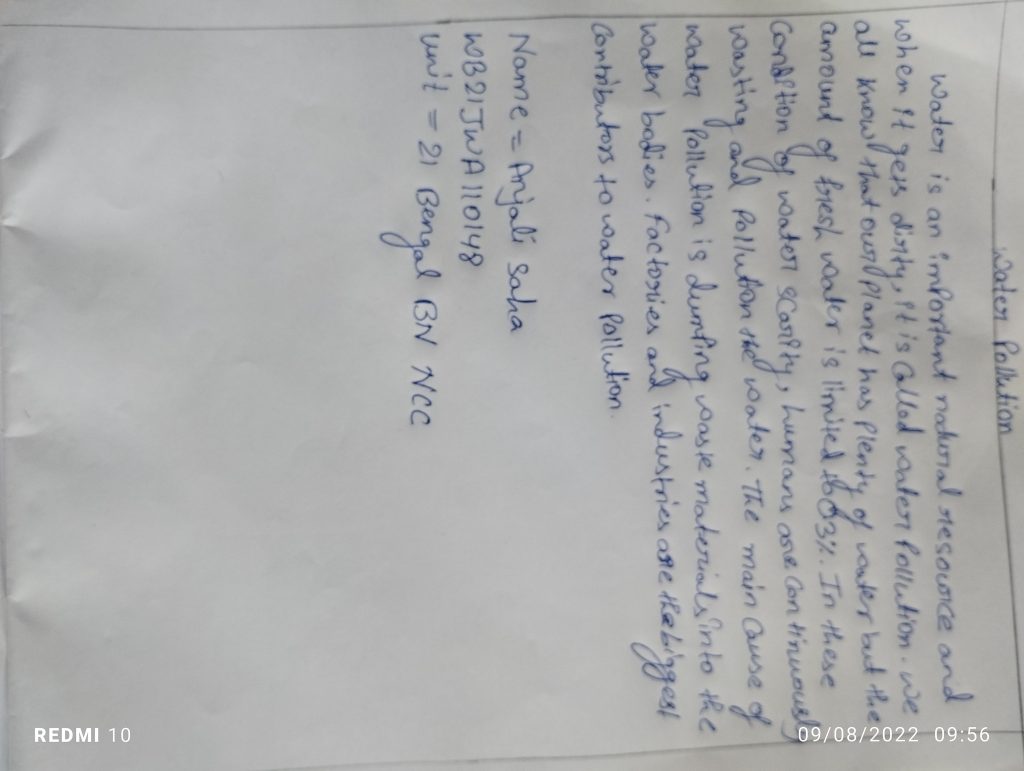 Water Pollution
Water is an important natural resource and
when it gets dirty, it is called water Pollution. We
all know that our Planet has Plenty of water but the
amount of fresh water is limited to 3%. In these
condition of water scarity, humans are continuously
wasting and Pollution the water. The main cause of
water Pollution is dumting waste materials into the
water bodies. Factories and industries are the biggest
contributors to water Pollution.
Name = Anjali Saha
WB21JWA110148
Unit = 21 Bengal BN NCC
REDMI 10
09/08/2022 09:56